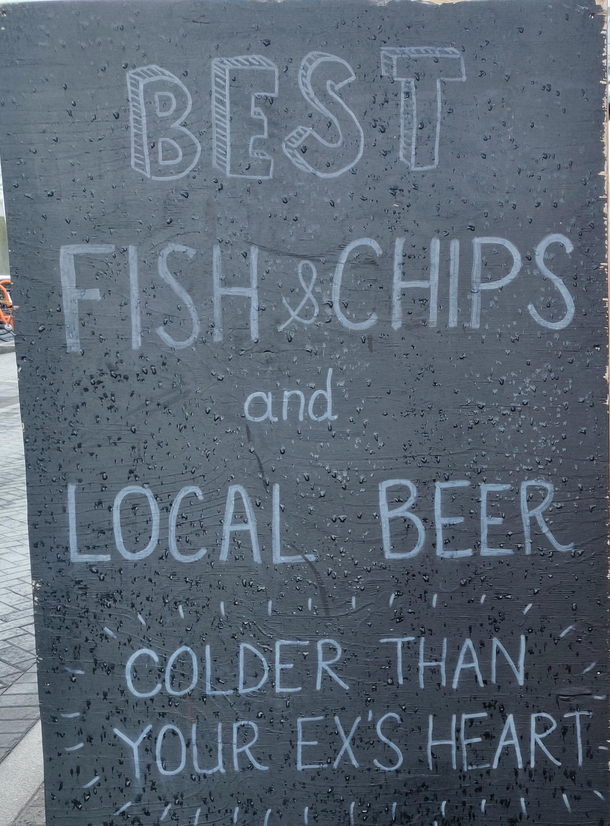 BEST
FISH & CHIPS
and
LOCAL BEER
COLDER THAN
YOUR EX'S HEART